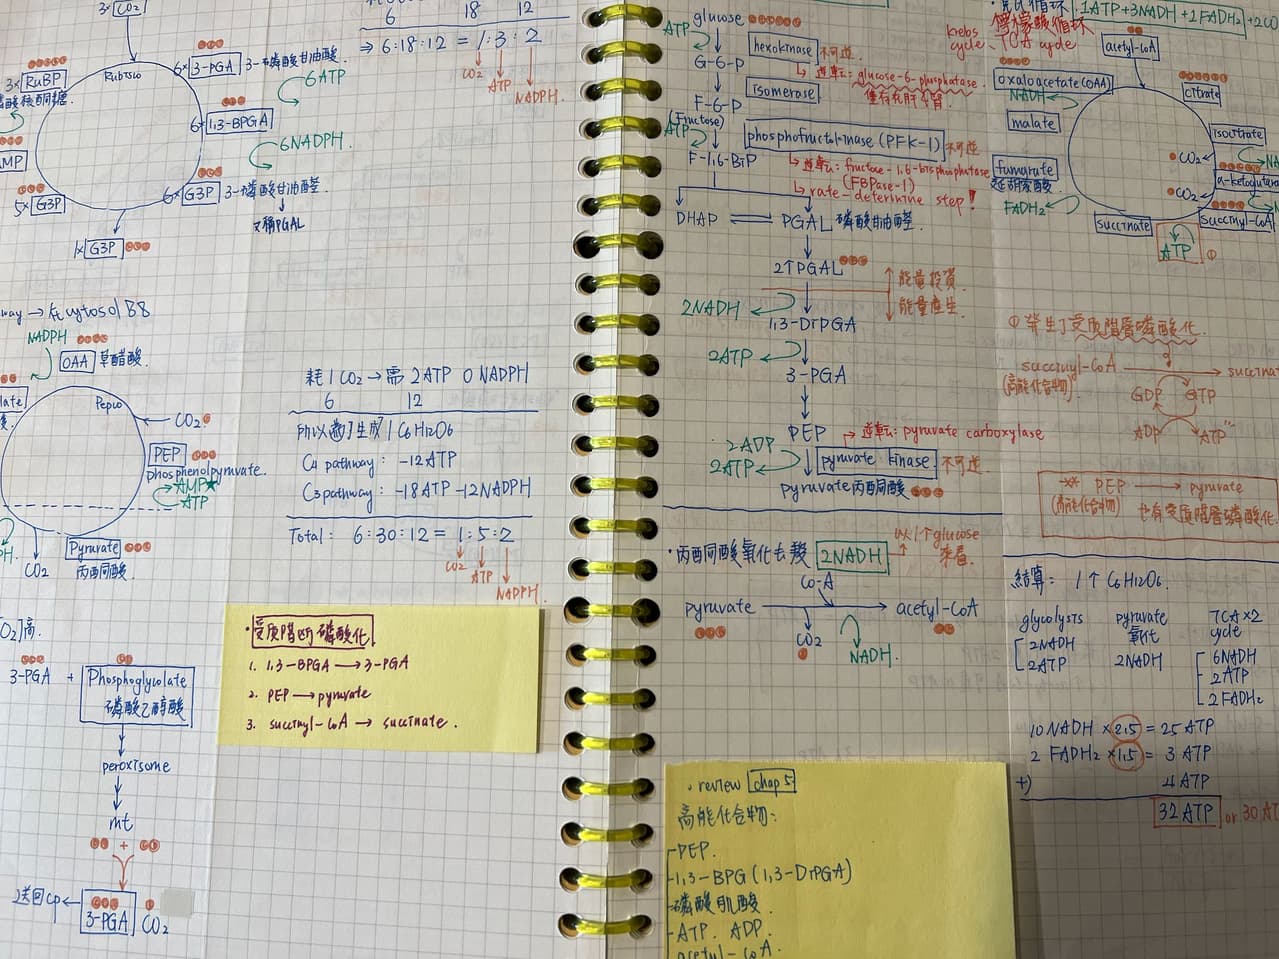 3× CO₂
6 18 12
⇒ 6:18:12 = 1:3:2
CO₂
ATP
NADPH.
Rubisco
3× RuBP
6× 3-PGA 3-磷酸甘油酸
6ATP
6× 1,3-BPGA
6NADPH.
6× G3P 3-磷酸甘油醛
又稱PGAL
5× G3P
1× G3P
way → 在cytosol BS
NADPH
OAA 草醋酸
Pepco
CO₂
PEP
phosphenolpyruvate.
AMP★
ATP
Pyruvate
丙酮酸
CO₂
耗1CO₂ → 需 2ATP 0NADPH
6 12
所以為了生成1C₆H₁₂O₆
C₄ pathway: -12ATP
C₃ pathway: -18ATP -12NADPH
Total: 6:30:12 = 1:5:2
CO₂
ATP
NADPH.
[O₂]高.
3-PGA + Phosphoglycolate
磷酸乙醇酸
peroxisome
mt
送回cp ← 3-PGA CO₂
·受质階断磷酸化
1. 1,3-BPGA → 3-PGA
2. PEP → pyruvate
3. succinyl-CoA → succinate.
glucose
ATP
hexokinase 不可逆
G-6-P
逆轉: glucose-6-phosphatase
僅存在肝、腎
isomerase
F-6-P
(Fructose)
ATP
phosphofructokinase (PFK-1) 不可逆
F-1,6-BiP
逆轉: fructose-1,6-bisphosphatase
(FBPase-1)
rate-determine step!
DHAP ⇌ PGAL 磷酸甘油醛.
2个PGAL
能量投資
能量產生.
2NADH
1,3-DiPGA
2ATP
3-PGA
PEP → 逆轉: pyruvate carboxylase
2ADP
2ATP
pyruvate kinase. 不可逆.
pyruvate丙酮酸
·丙酮酸氧化去羧 2NADH
以1个glucose
來看.
Co-A
pyruvate → acetyl-CoA
CO₂
NADH.
·review chap 5
高能化合物:
-PEP.
-1,3-BPG (1,3-DiPGA)
-磷酸肌酸.
-ATP. ADP.
acetyl-CoA.
1ATP+3NADH+1FADH₂+2CO
檸檬酸循环
krebs
cycle、TCA cycle
acetyl-CoA
oxaloacetate (OAA)
NADH
citrate
malate
isocitrate
CO₂
fumarate
延胡索酸
α-ketoglutarate
CO₂
FADH₂
succinate
succinyl-CoA
ATP ①
① 發生了受质階層磷酸化.
succinyl-CoA → succinate
(高能化合物)
GDP GTP
ADP ATP
** PEP → pyruvate
(高能化合物) 也有受质階層磷酸化
結算: 1个C₆H₁₂O₆.
glycolysis pyruvate TCA×2
氧化 cycle
2NADH
2ATP
2NADH
6NADH
2ATP
2FADH₂
10NADH ×2.5 = 25 ATP
2 FADH₂ ×1.5 = 3 ATP
+) 4 ATP
32 ATP or 30 AT